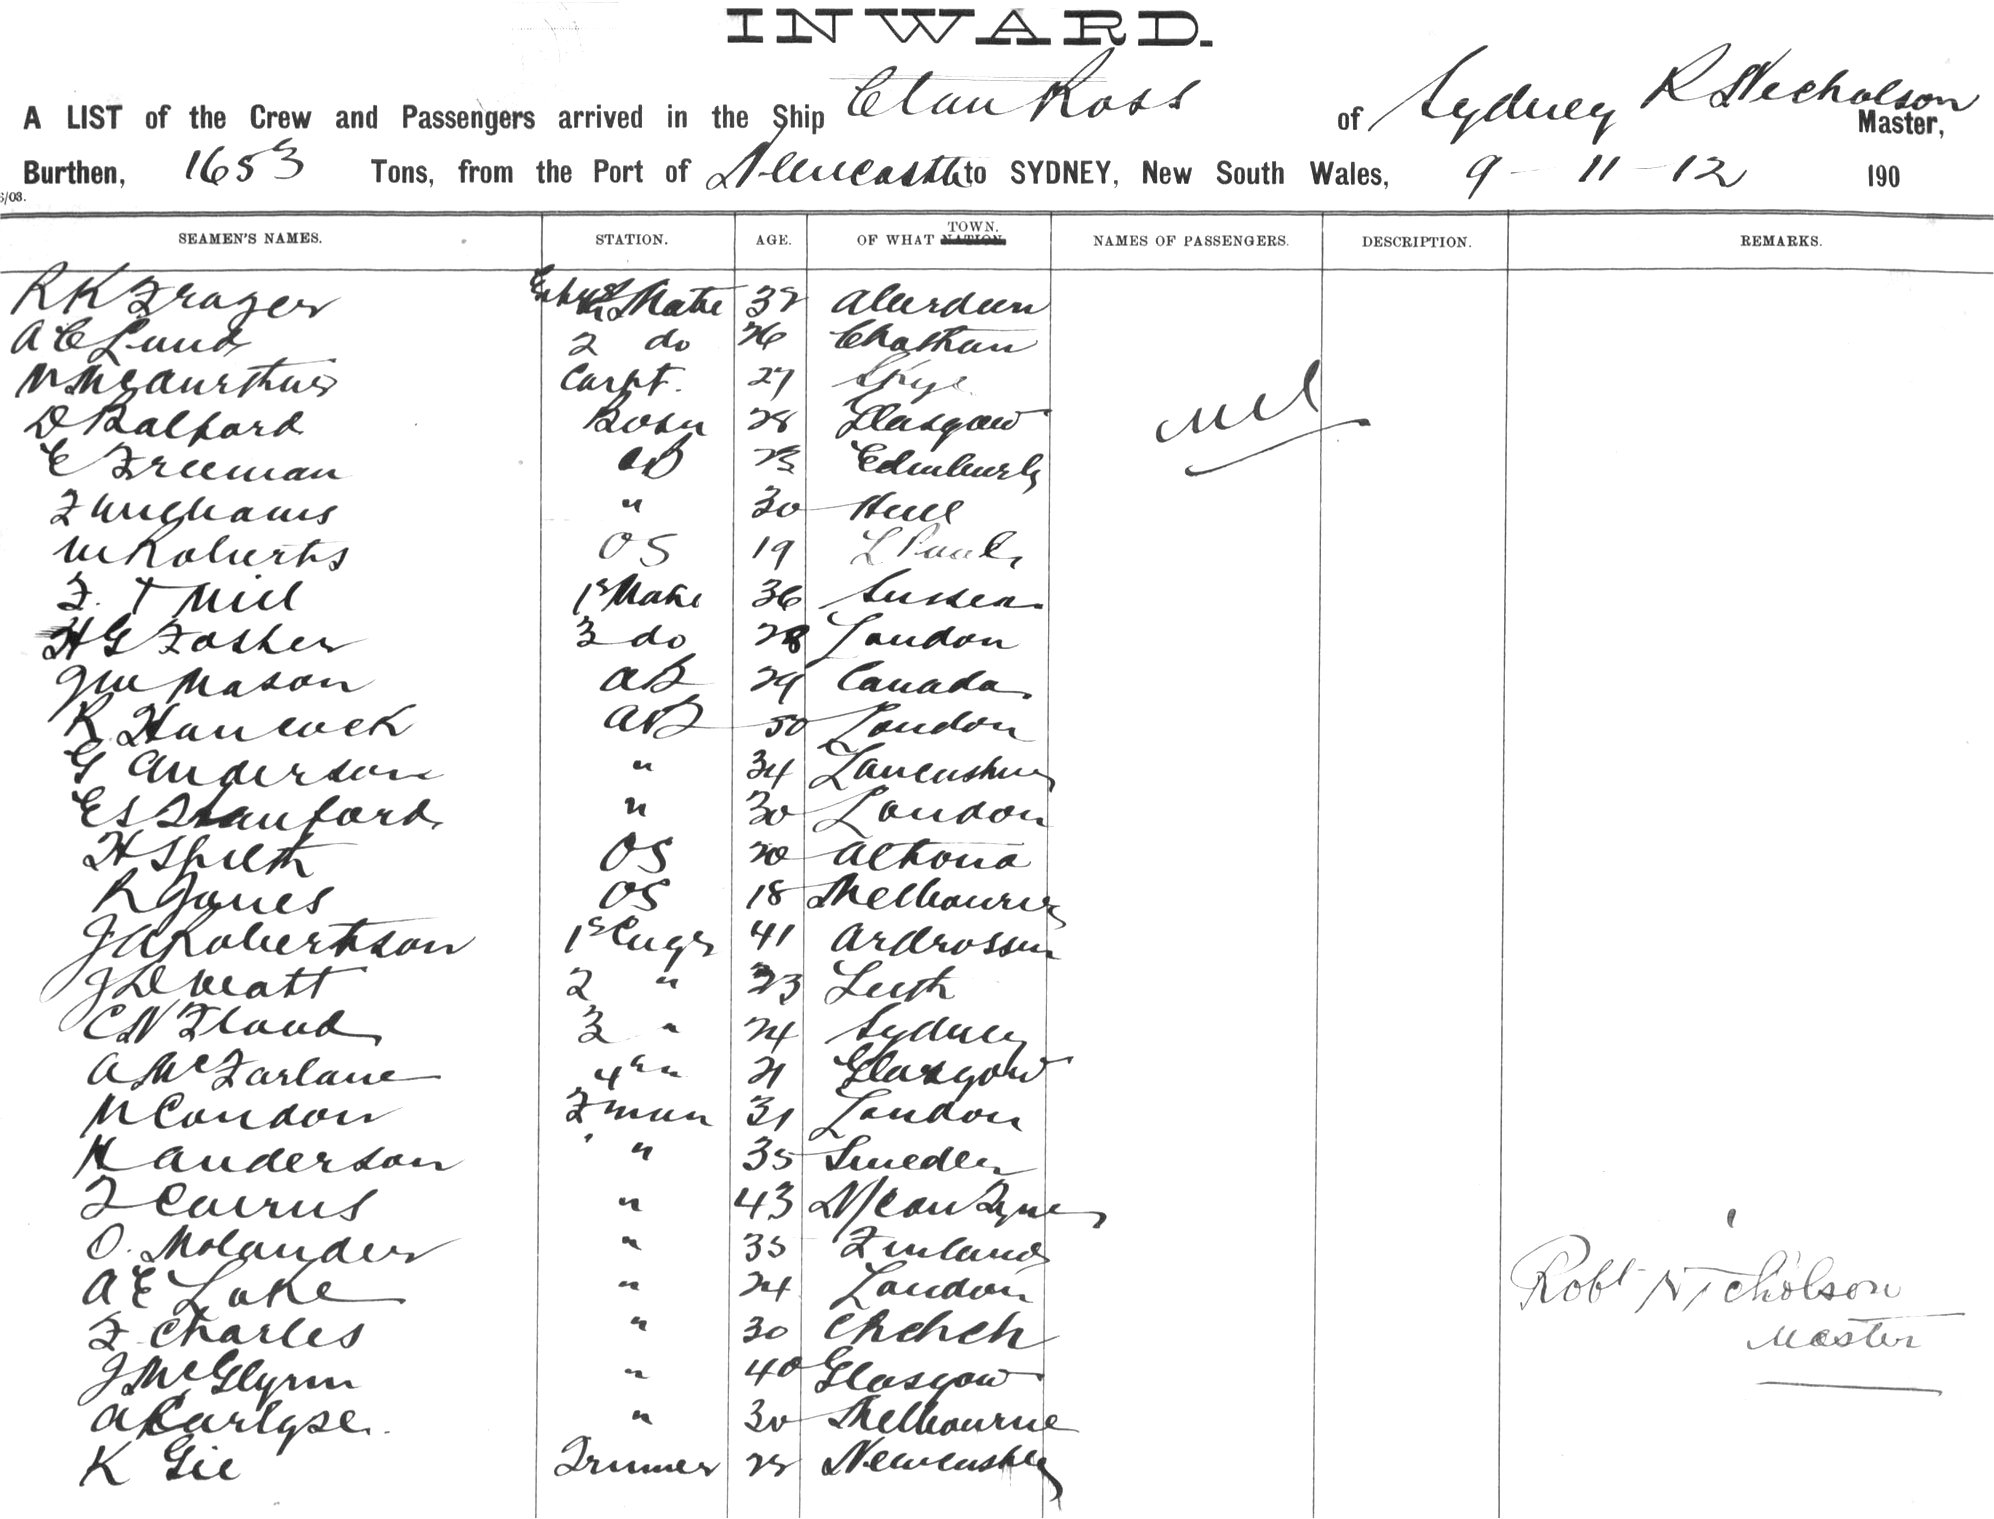 INWARD.
A LIST of the Crew and Passengers arrived in the Ship Clan Ross of Sydney R Nicholson Master,
Burthen, 1653 Tons, from the Port of Newcastle to SYDNEY, New South Wales, 9-11-12 190
6/03.
SEAMEN'S NAMES. STATION. AGE. OF WHAT NATION. TOWN. NAMES OF PASSENGERS. DESCRIPTION. REMARKS.
R K Frazer Mate Aberdeen
A E Lund 2 do 26 Chatham
Carpt. 27 Skye
D Balford Bosn 28 Glasgow
E Freeman AB Edinburgh
nil
F " 30 Hull
W Roberts OS 19
F. T Mill 1st Mate 36 Sussex
H G Fosher 3 do 28 London
J W Mason AB 29 Canada
R Hancock AB 50 London
G Anderson " 34 Lancashire
E S Stanford " 30 London
H Spieth OS 20 Altona
R Jones OS 18 Melbourne
J A Robertson 1st Engr 41 Ardrossan
J D Watt 2 " 23 Leith
C W Flood 3 " 24 Sydney
A McFarlane 4th " 21 Glasgow
M Condon Fman 31 London
H Anderson " 35 Sweden
F Cairns " 43 N/C on Tyne
O. Molander " 35 Finland
A E Lake " 24 London
F. Charles " 30 Chchch
J McGlynn " 40 Glasgow
A Carlyse. " 30 Melbourne
K Gie Trimmer 28 Newcastle
Robt Nicholson
Master